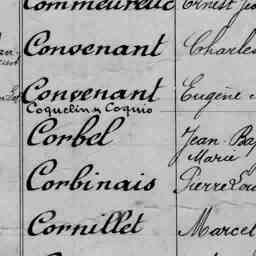 Commeureuc Ernest
Convenant Charles
Convenant Eugène
Coquelin & Coquio
Corbel Jean Bap
Marie
Corbinais Pierre Lou
Cornillet Marcel